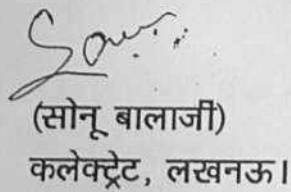 (सोनू बालाजी)
कलेक्ट्रेट, लखनऊ।